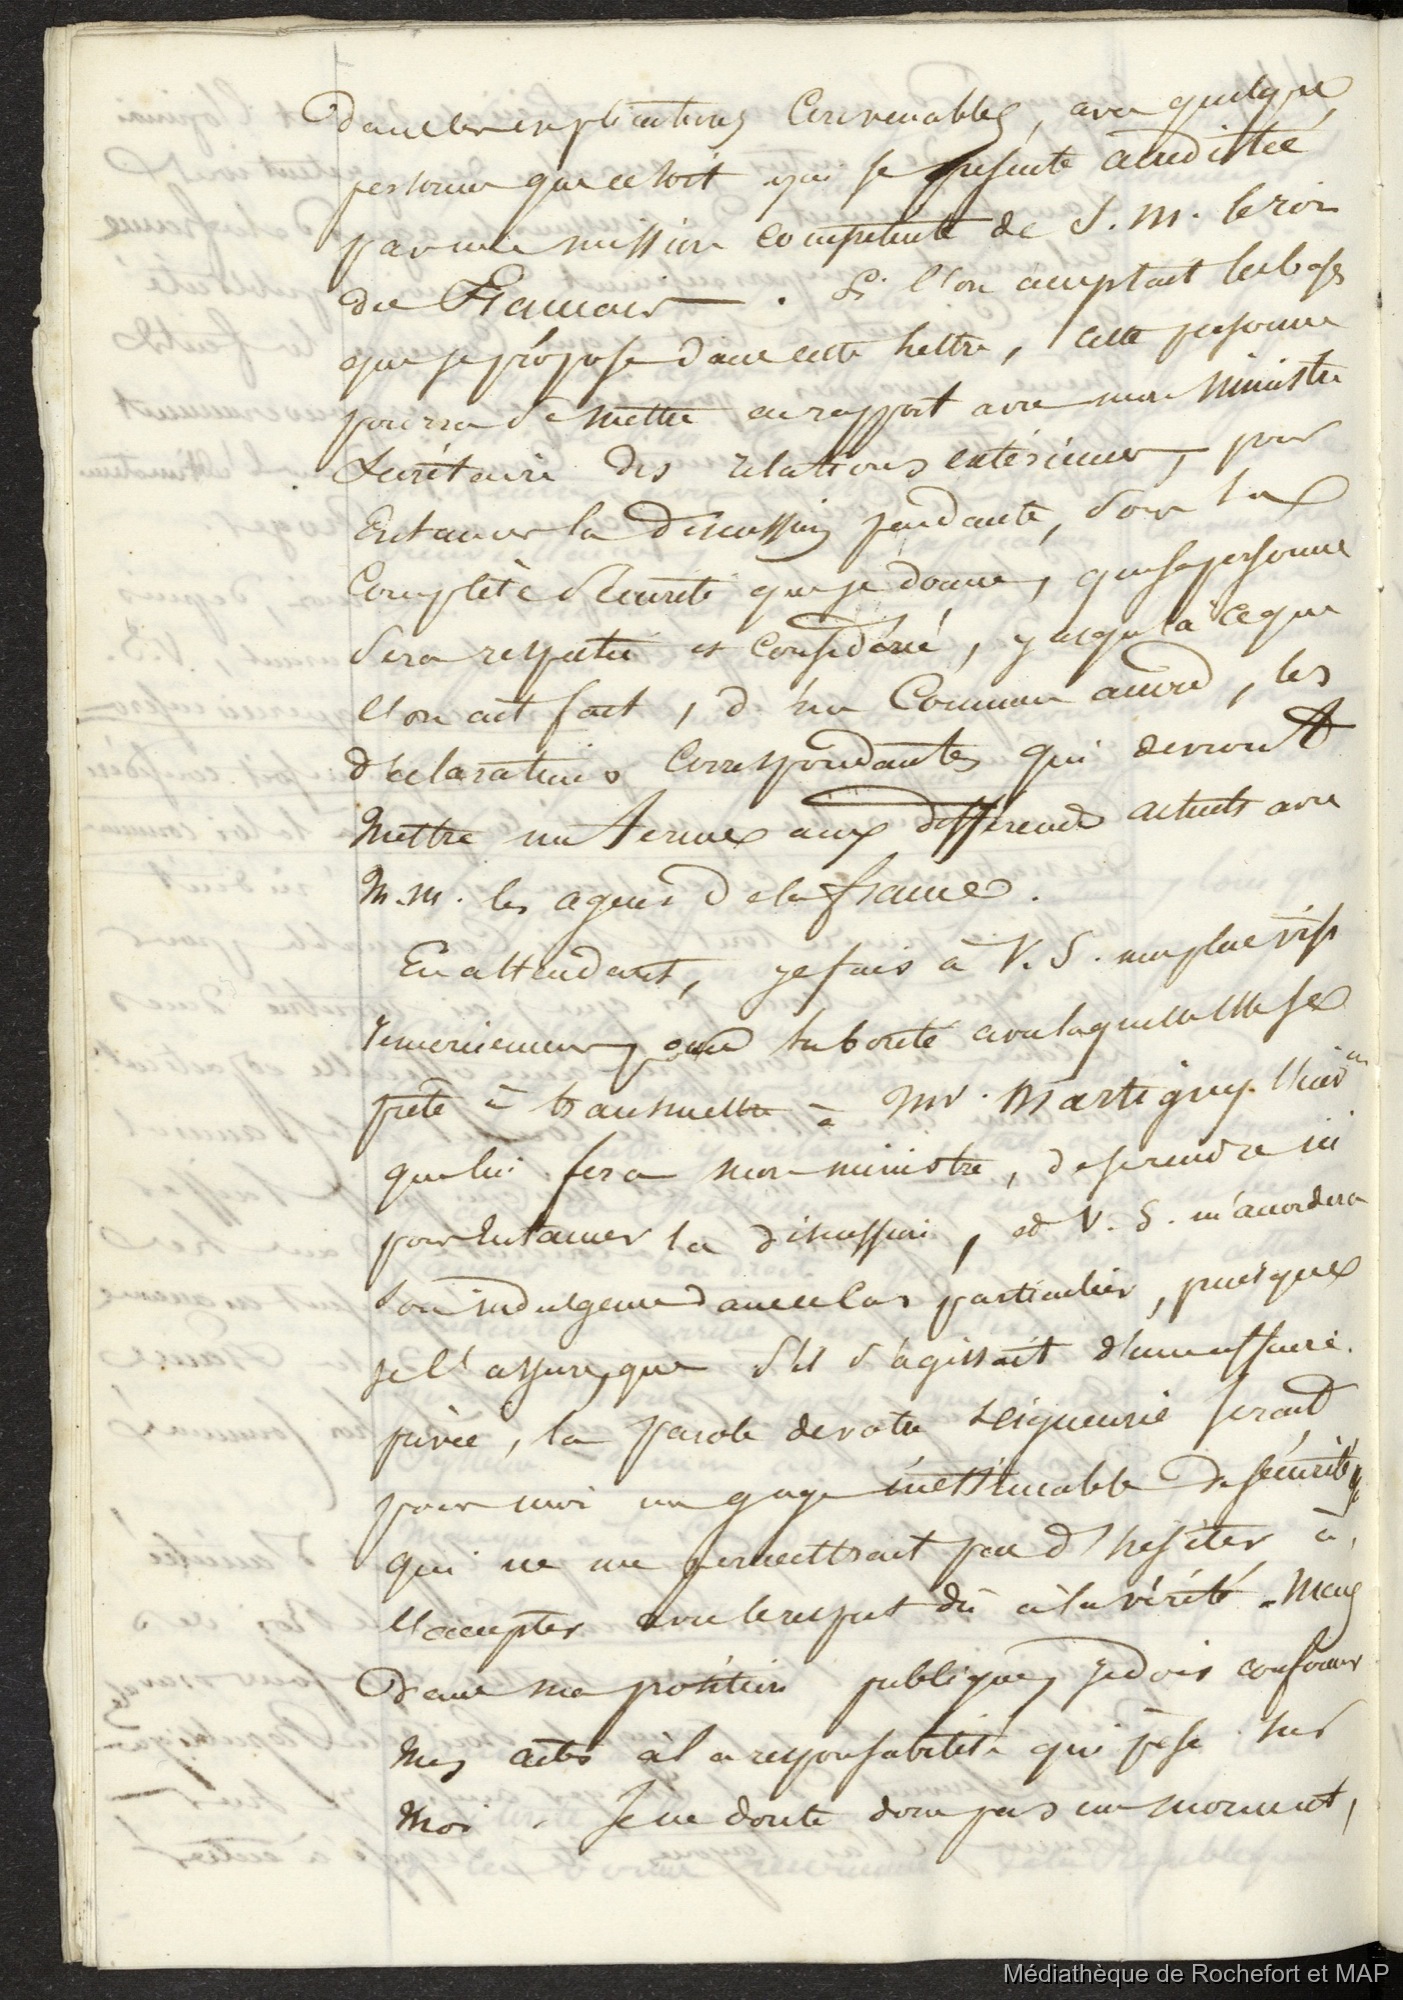 dans les explications convenables, avec quelque
personne que ce soit qui se présente accréditée
par une mission compétente de S. M. le roi
des Français. Si l'on acceptait les bases
que je propose dans cette lettre, cette personne
pourra se mettre en rapport avec mon ministre
secrétaire des relations extérieures, pour
entamer la discussion pendante, sous la
complète sécurité que je donne, que sa personne
sera respectée et considérée, jusqu'à ce que
l'on ait fait, d'un commun accord, les
déclarations correspondantes qui devront
mettre un terme aux différends actuels avec
M.M. les agens de la france.
En attendant, je fais à V. S. mes plus vifs
remerciemens pour la bonté avec laquelle elle se
prête à transmettre à Mr. Martigny l'inv.on
que lui fera mon ministre, de se rendre ici
pour entamer la discussion, et V. S. m'accordera
son indulgence dans ce cas particulier, puisque
je l'assure, que s'il s'agissait d'une affaire
privée, la parole de votre seigneurie serait
pour moi un gage inestimable de sécurité
qui ne me permettrait pas d'hésiter à
l'accepter avec le respect dû à la vérité. Mais
dans ma position publique, je dois conformer
mes actes à la responsabilité qui pèse sur
moi. Je ne doute donc pas un moment,
Médiathèque de Rochefort et MAP